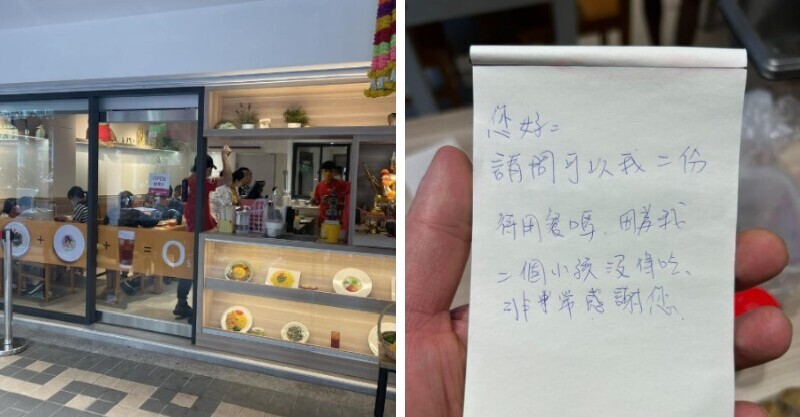 OPEN
您好=
請問可以我二份
待用餐嗎、因為我
二個小孩沒得吃、
非常感謝您、